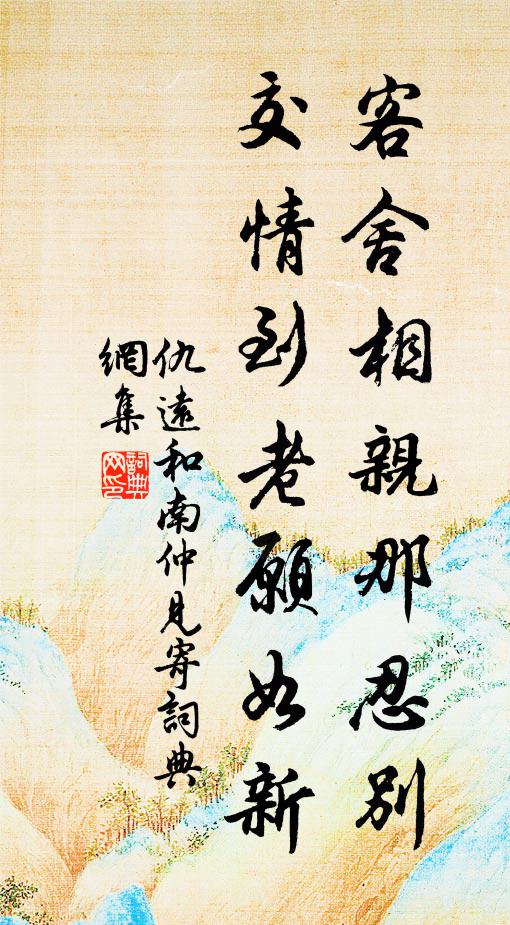 客舍相親那忍別
交情到老願如新
仇遠和南仲見寄詞典
網集
詞典網印